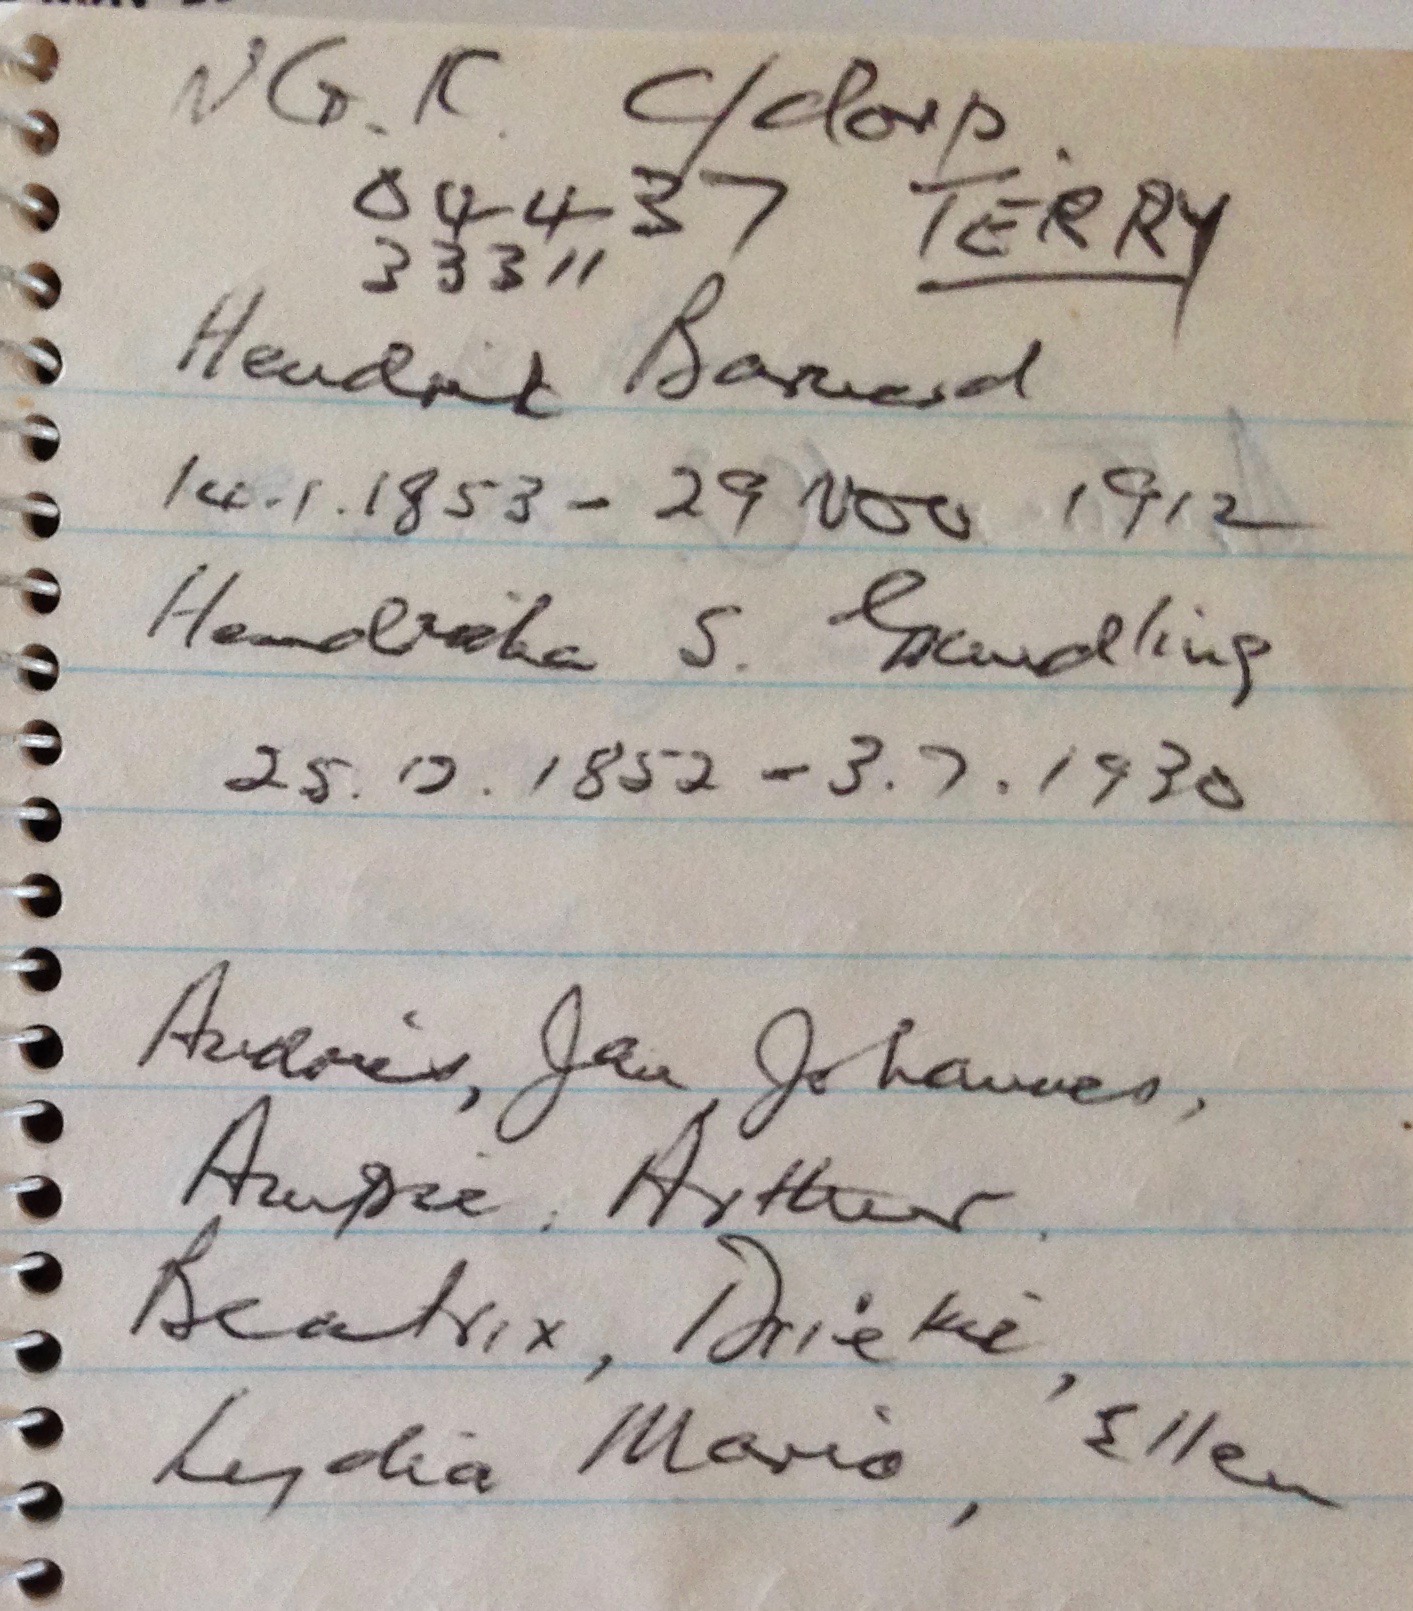 N G. K. C/dorp.
04437 TERRY
33311
Hendrik Barnard
14.1.1853 - 29 Nov 1912
Hendrika S. Grundling
25.12.1852 - 3.7.1930
Andries, Jan, Johannes,
Arthur.
Beatrix, Driekie,
Lydia Maria, Ellen